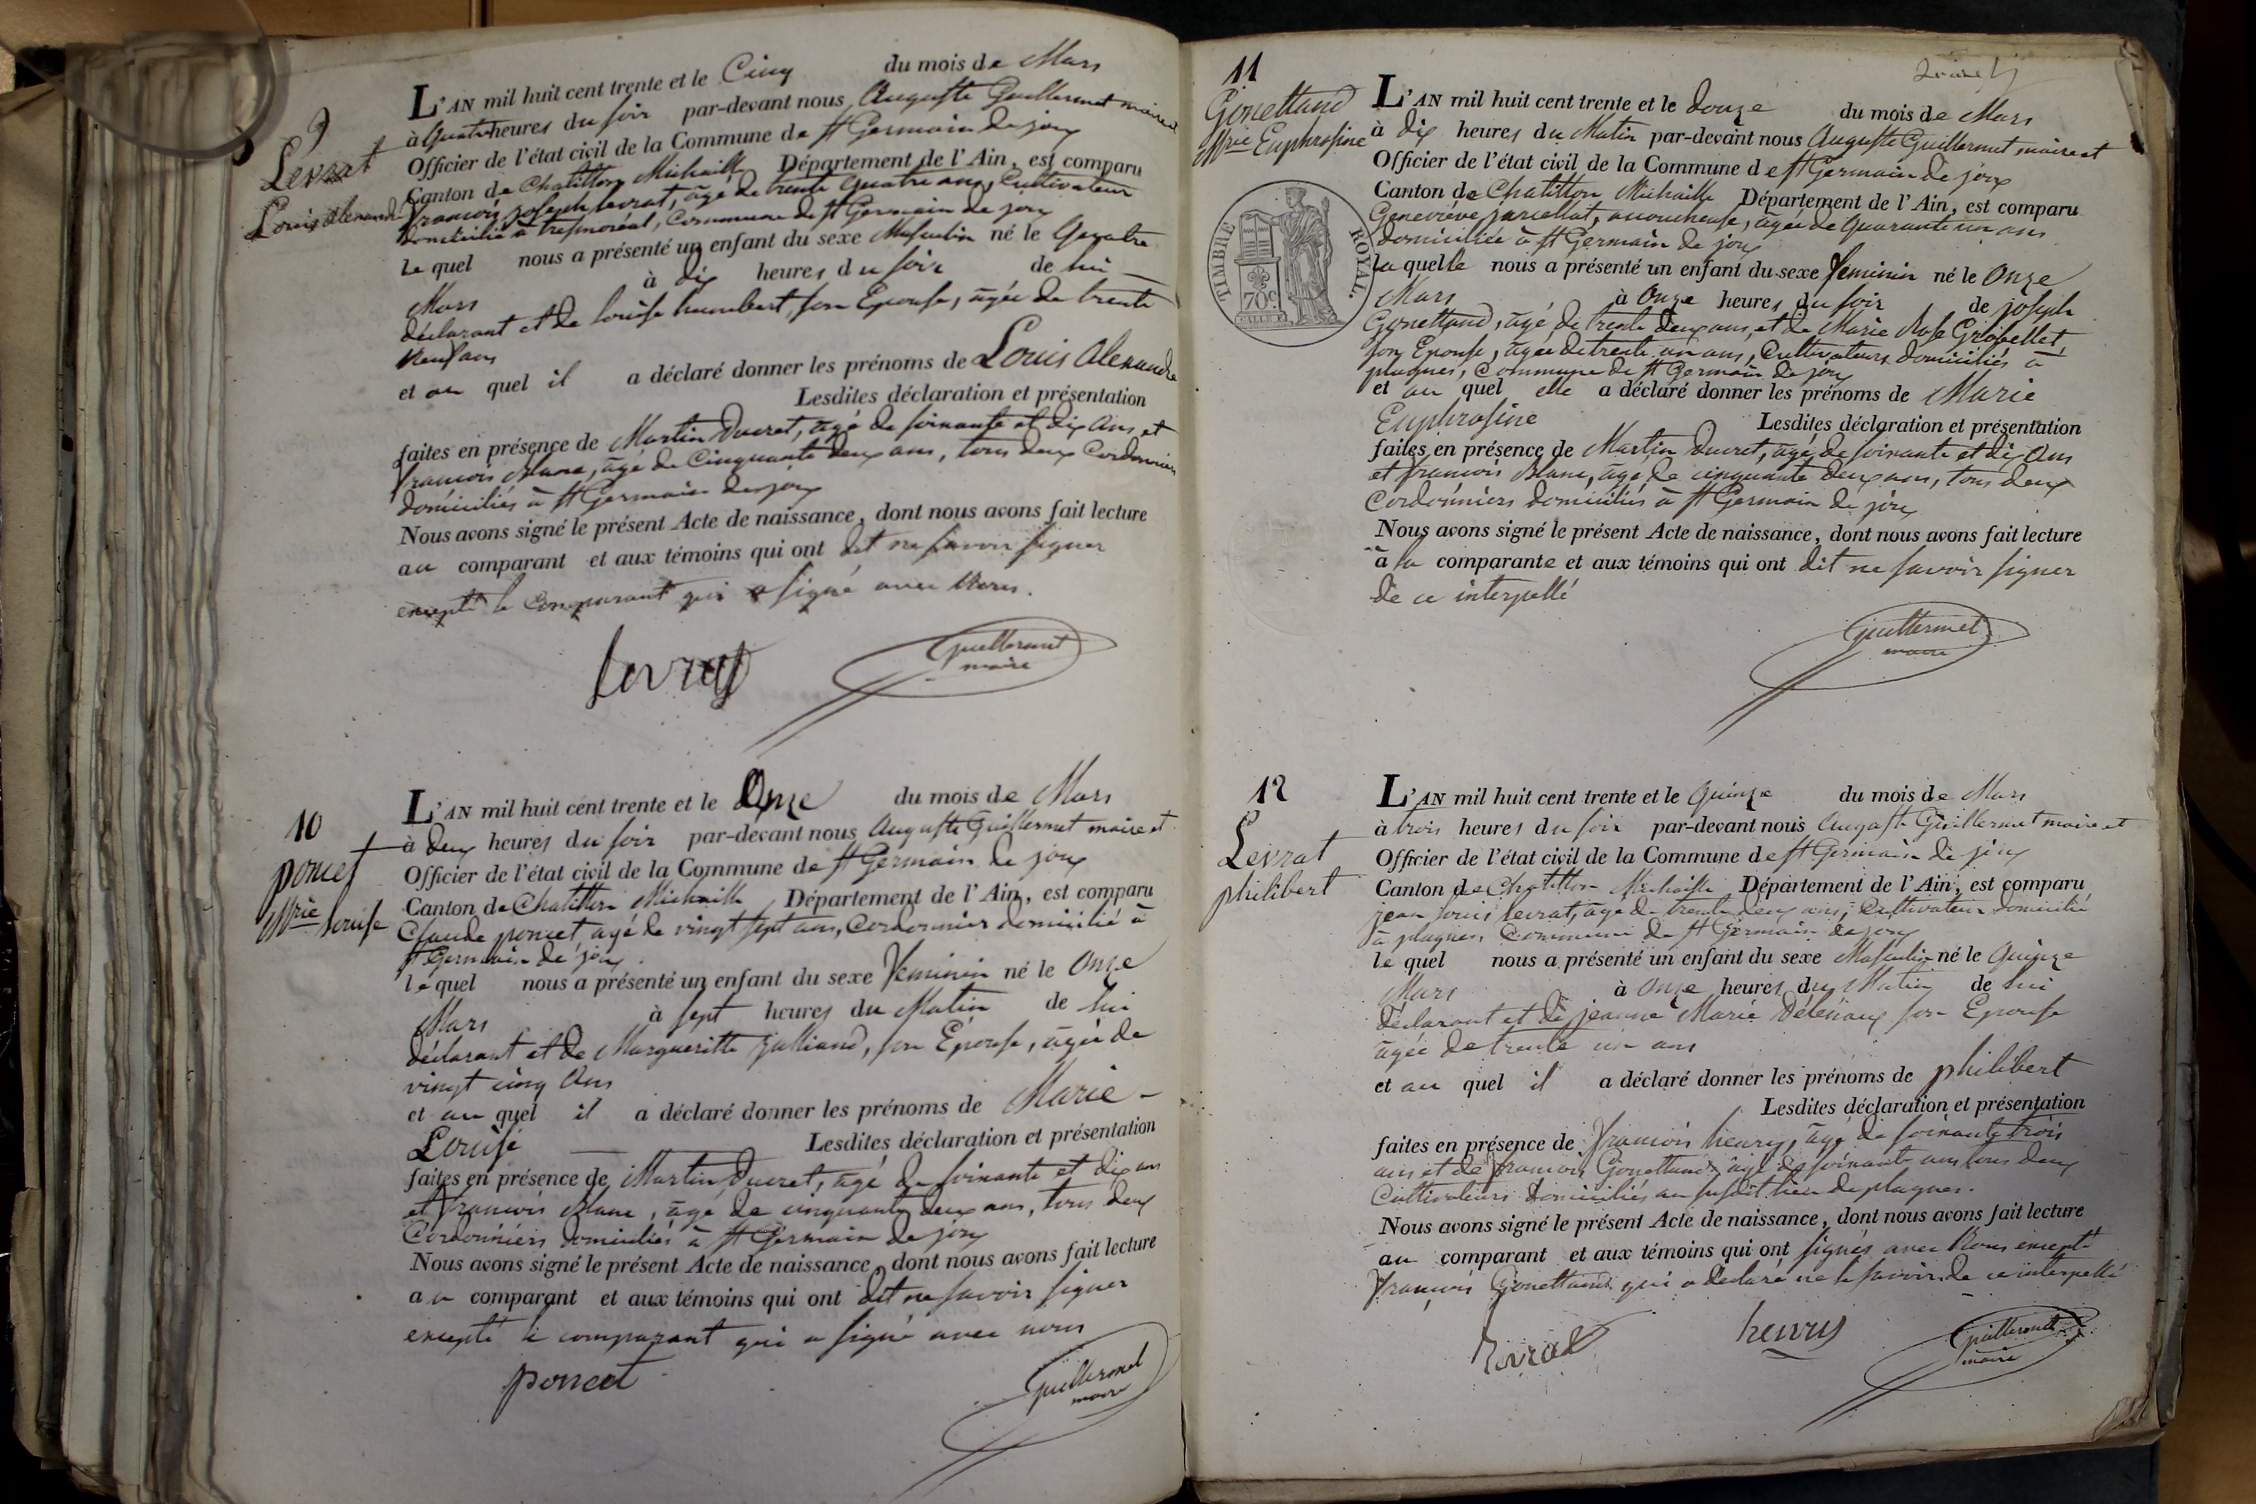 9
Levrat
Louis Alexandre
L'AN mil huit cent trente et le Cinq du mois de Mars
à quatre heures du soir par-devant nous Auguste Guillermet maire et
Officier de l'état civil de la Commune de st Germain de joux
Canton de Chatillon Michaille Département de l'Ain, est comparu
françois joseph levrat, âgé de trente quatre ans, Cultivateur
domicilié à tresmoréal, Commune de st Germain de joux
le quel nous a présenté un enfant du sexe Masculin né le Quatre
Mars à dix heures du soir de lui
déclarant et de louise humbert, son Epouse, âgée de trente
neuf ans
et au quel il a déclaré donner les prénoms de Louis Alexandre
Lesdites déclaration et présentation
faites en présence de Martin Ducret, âgé de soixante et dix ans et
françois Blanc, âgé de Cinquante deux ans, tous deux Cordonniers
domiciliés à st Germain de joux
Nous avons signé le présent Acte de naissance, dont nous avons fait lecture
au comparant et aux témoins qui ont dit ne savoir signer
excepté le Comparant qui a signé avec Nous.
levrat
Guillermet
maire
10
poncet
Mrie Louise
L'AN mil huit cent trente et le Onze du mois de Mars
à deux heures du soir par-devant nous Auguste Guillermet maire et
Officier de l'état civil de la Commune de st Germain de joux
Canton de Chatillon Michaille Département de l'Ain, est comparu
Claude poncet âgé de vingt sept ans, Cordonnier domicilié à
st Germain de joux
le quel nous a présenté un enfant du sexe Feminin né le Onze
Mars à sept heures du Matin de lui
déclarant et de Margueritte julliand, son Epouse, âgée de
vingt cinq Ans
et au quel il a déclaré donner les prénoms de Marie
Louise Lesdites déclaration et présentation
faites en présence de Martin Ducret, âgé de soixante et dix ans
et françois Blanc, âgé de cinquante deux ans, tous deux
Cordonniers domiciliés à st Germain de joux
Nous avons signé le présent Acte de naissance, dont nous avons fait lecture
au comparant et aux témoins qui ont dit ne savoir signer
excepté le comparant qui a signé avec nous
poncet
Guillermet
maire
11
Gonettand
Mrie Euphrosine
TIMBRE ROYAL.
70c
L'AN mil huit cent trente et le douze du mois de Mars
à dix heures du Matin par-devant nous Auguste Guillermet maire et
Officier de l'état civil de la Commune de st Germain de joux
Canton de Chatillon Michaille Département de l'Ain, est comparu
Geneviève accoucheuse, âgée de quarante un ans
domiciliée à st Germain de joux
la quelle nous a présenté un enfant du sexe feminin né le Onze
Mars à Onze heures du soir de joseph
Gonettand, âgé de trente deux ans, et de Marie Rose Grobellet
son Epouse, âgée de trente un ans, Cultivateurs domiciliés à
plagnes, Commune de st Germain de joux
et au quel elle a déclaré donner les prénoms de Marie
Euphrosine Lesdites déclaration et présentation
faites en présence de Martin Ducret, âgé de soixante et dix Ans
et françois Blanc, âgé de cinquante deux ans, tous deux
Cordonniers domiciliés à st Germain de joux
Nous avons signé le présent Acte de naissance, dont nous avons fait lecture
à la comparante et aux témoins qui ont dit ne savoir signer
de ce interpellé
Guillermet
maire
12
Levrat
philibert
L'AN mil huit cent trente et le Quinze du mois de Mars
à trois heures du soir par-devant nous Auguste Guillermet maire et
Officier de l'état civil de la Commune de st Germain de joux
Canton de Chatillon Michaille Département de l'Ain, est comparu
jean louis levrat, âgé de trente deux ans, Cultivateur domicilié
à plagnes, Commune de st Germain de joux
le quel nous a présenté un enfant du sexe Masculin né le Quinze
Mars à Onze heures du Matin de lui
déclarant et de jeanne Marie son Epouse
âgée de trente un ans
et au quel il a déclaré donner les prénoms de philibert
Lesdites déclaration et présentation
faites en présence de françois henry, âgé de soixante trois
ans et de françois Gonettand âgé de soixante ans tous deux
Cultivateurs domiciliés au susdit lieu de plagnes.
Nous avons signé le présent Acte de naissance, dont nous avons fait lecture
au comparant et aux témoins qui ont signés avec Nous excepté
françois Gonettand qui a déclaré ne le savoir de ce interpellé
levrat
henry
Guillermet
maire